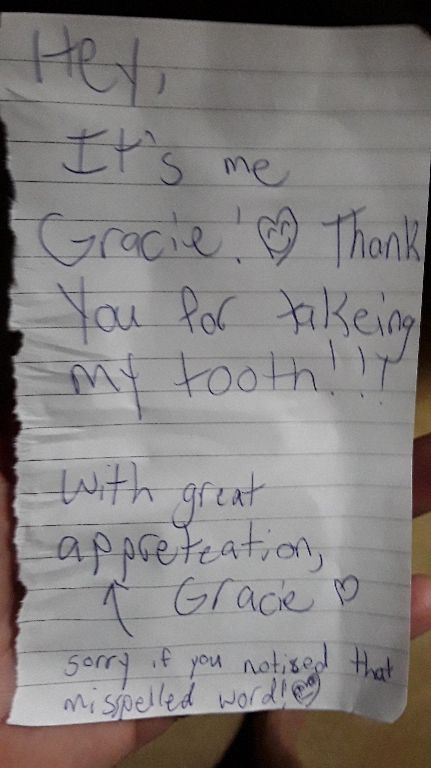 Hey,
It's me
Gracie! Thank
You for takeing
my tooth!!!
With great
appreteation,
Gracie
sorry if you notised that
misspelled word!